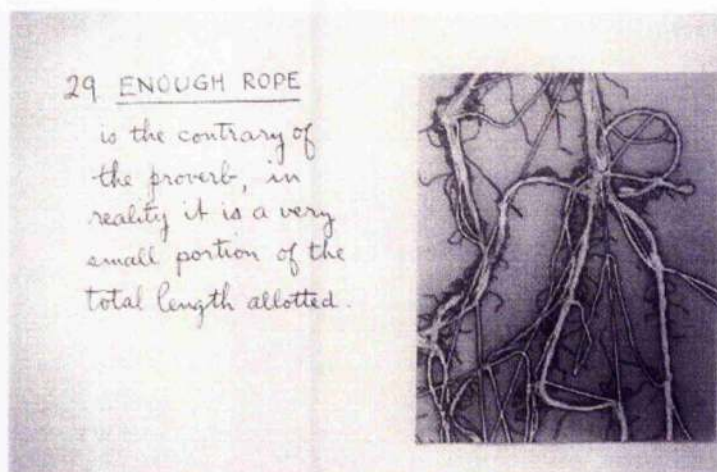 29 ENOUGH ROPE
is the contrary of
the proverb, in
reality it is a very
small portion of the
total length allotted.